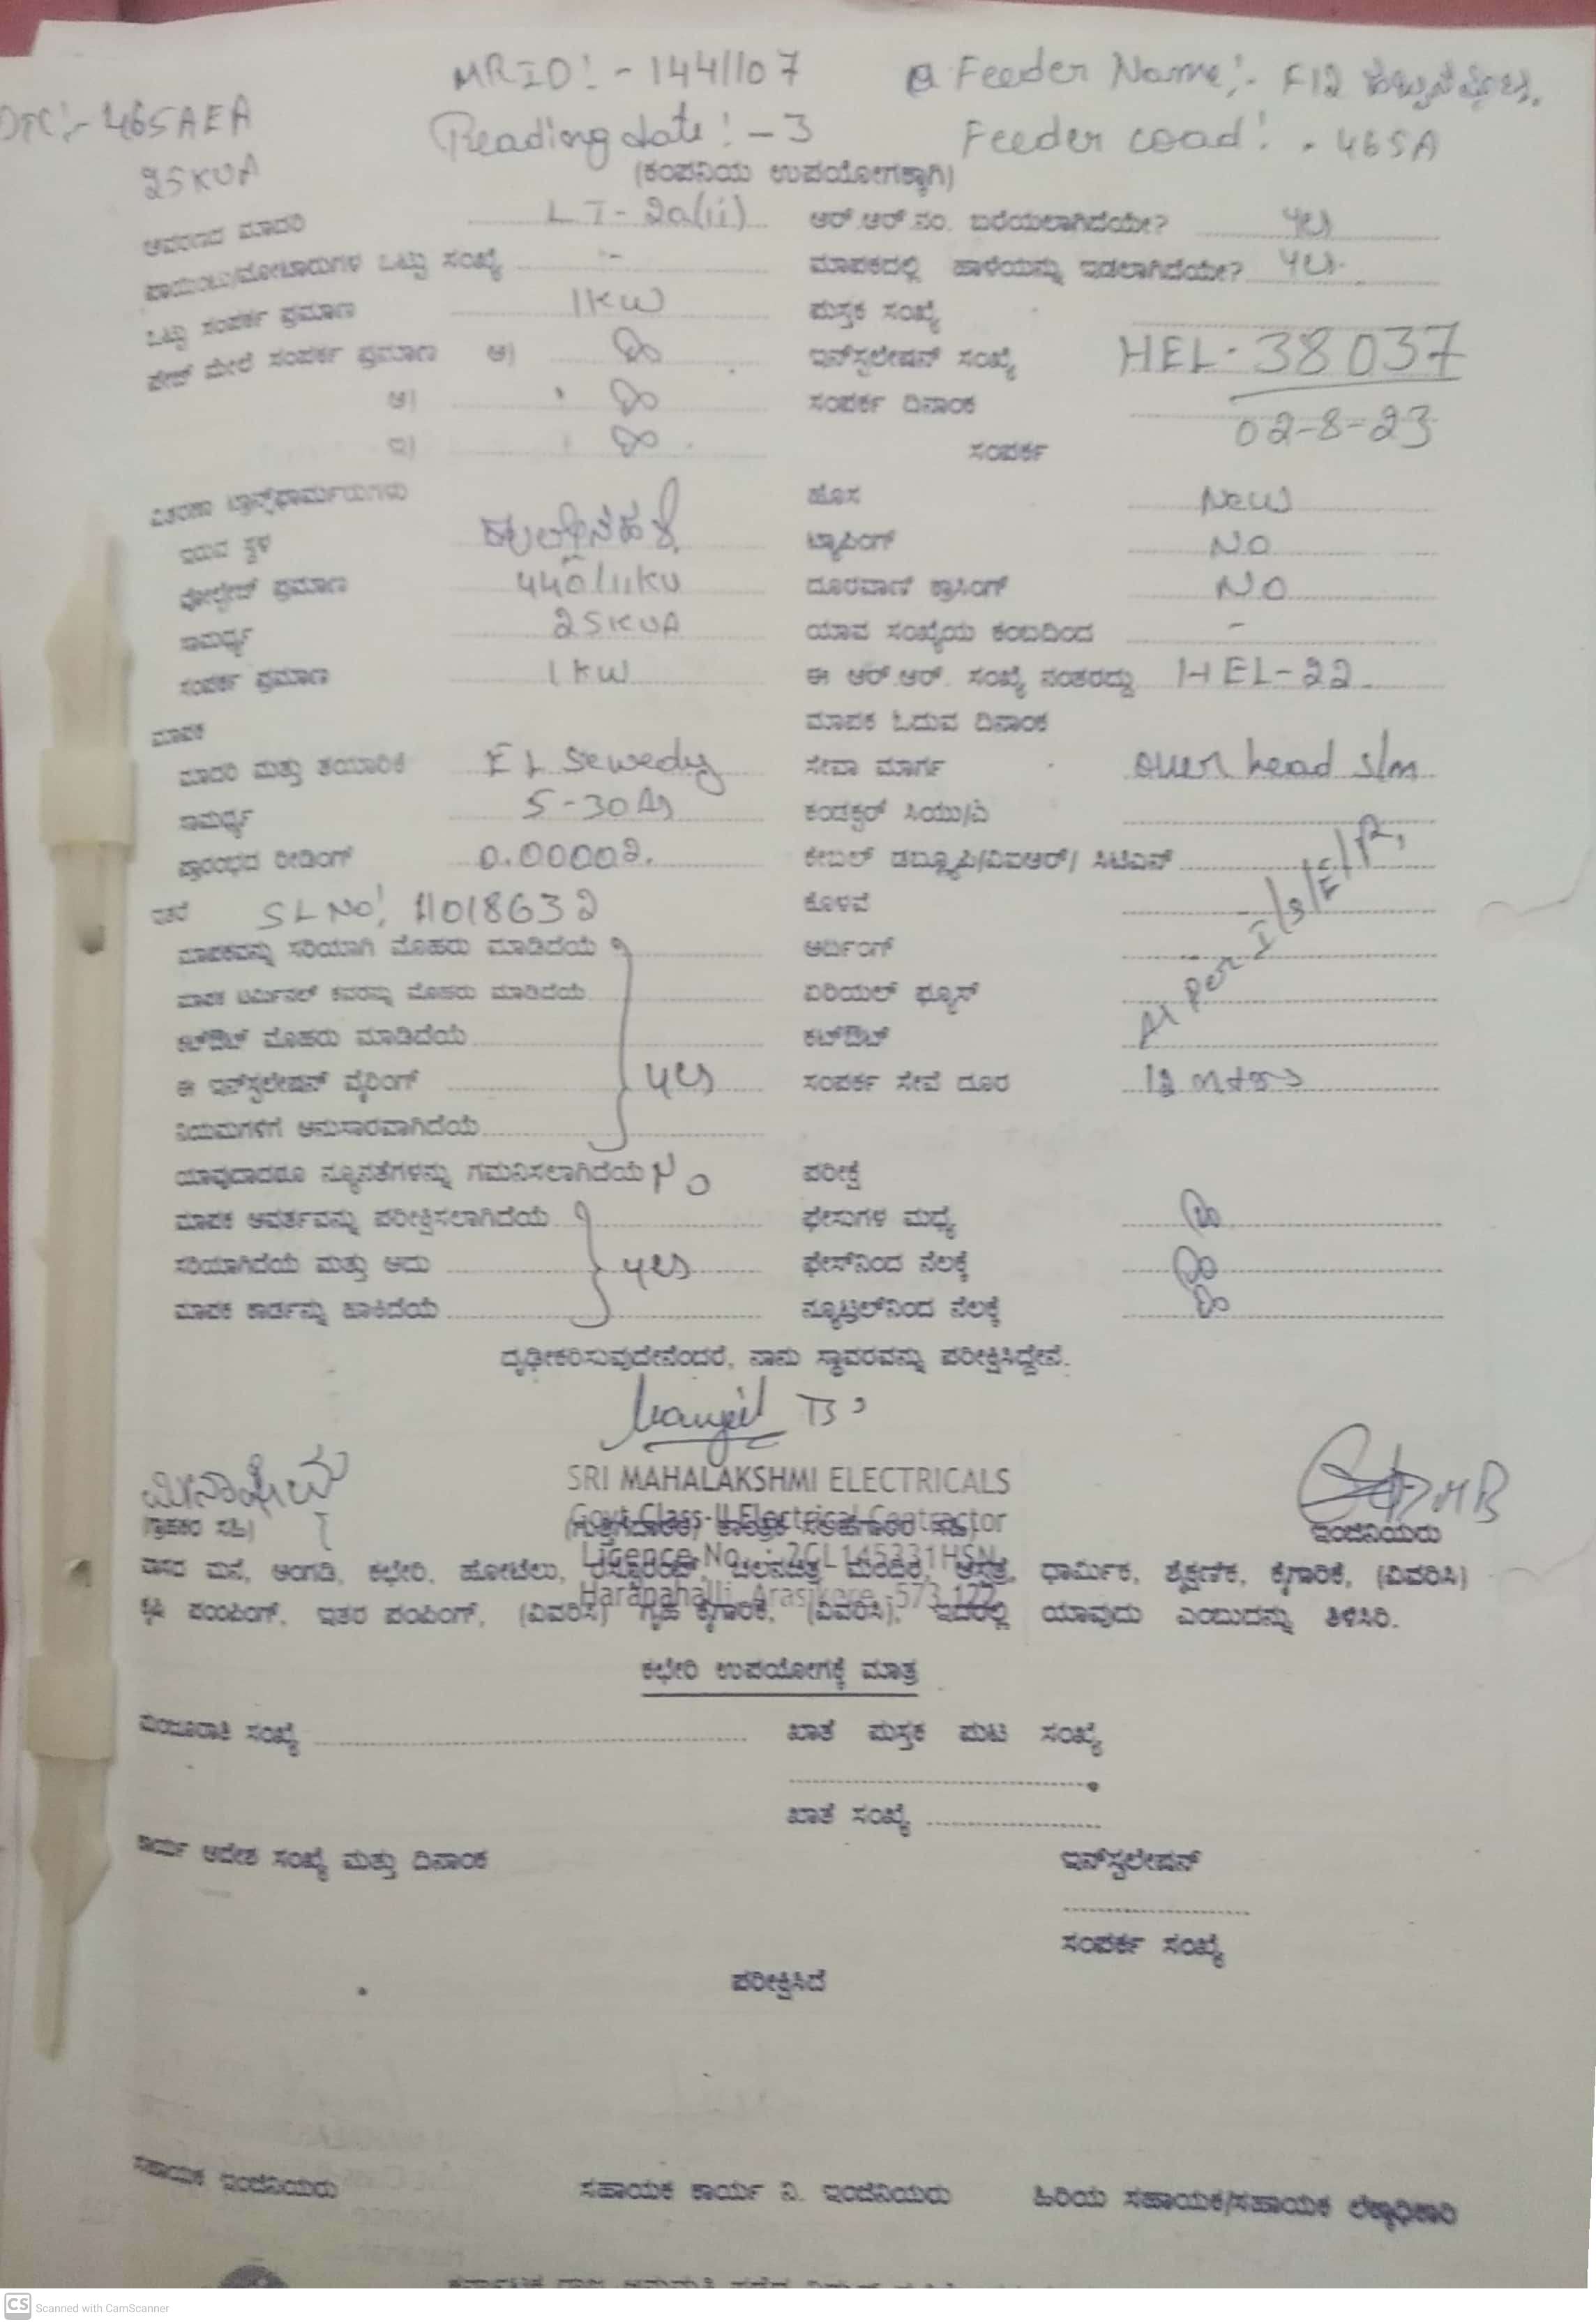 MRID:- 1441107
Feeder Name:- F12
DTC:- 465AEA
Reading date:- 3
Feeder coad:- 465A
25KVA
(ಕಂಪನಿಯ ಉಪಯೋಗಕ್ಕಾಗಿ)
ಆವರಣದ ಮಾದರಿ LT-2a(ii) ಆರ್.ಆರ್.ನಂ. ಬರೆಯಲಾಗಿದೆಯೇ? yes
ಪಾಯಿಂಟು/ಮೋಟಾರುಗಳ ಒಟ್ಟು ಸಂಖ್ಯೆ :- ಮಾಪಕದಲ್ಲಿ ಹಾಳೆಯನ್ನು ಇಡಲಾಗಿದೆಯೇ? yes
ಒಟ್ಟು ಸಂಪರ್ಕ ಪ್ರಮಾಣ 1KW ಪುಸ್ತಕ ಸಂಖ್ಯೆ
ಪೇಜ್ ಮೇಲೆ ಸಂಪರ್ಕ ಪ್ರಮಾಣ ಅ) ಇನ್‌ಸ್ಟಲೇಷನ್ ಸಂಖ್ಯೆ HEL-38037
ಆ) ಸಂಪರ್ಕ ದಿನಾಂಕ 02-8-23
ಇ) ಸಂಪರ್ಕ
ವಿತರಣಾ ಟ್ರಾನ್ಸ್‌ಫಾರ್ಮರುಗಳು ಹೊಸ New
ಇರುವ ಸ್ಥಳ ಟ್ಯಾಪಿಂಗ್ NO
ವೋಲ್ಟೇಜ್ ಪ್ರಮಾಣ 440/11KV ದೂರವಾಣಿ ಕ್ರಾಸಿಂಗ್ NO
ಸಾಮರ್ಥ್ಯ 25KVA ಯಾವ ಸಂಖ್ಯೆಯ ಕಂಬದಿಂದ -
ಸಂಪರ್ಕ ಪ್ರಮಾಣ 1KW ಈ ಆರ್.ಆರ್. ಸಂಖ್ಯೆ ನಂತರದ್ದು HEL-22
ಮಾಪಕ ಮಾಪಕ ಓದುವ ದಿನಾಂಕ
ಮಾದರಿ ಮತ್ತು ತಯಾರಿಕೆ EL Sewedy ಸೇವಾ ಮಾರ್ಗ over head s/m
ಸಾಮರ್ಥ್ಯ 5-30A ಕಂಡಕ್ಟರ್ ಸಿಯು/ಎ
ಪ್ರಾರಂಭದ ರೀಡಿಂಗ್ 0.00002. ಕೇಬಲ್ ಡಬ್ಲ್ಯೂಪಿ/ವಿಐಆರ್/ ಸಿಟಿಎಸ್
ಇತರೆ SL No: 11018632 ಕೊಳವೆ
ಮಾಪಕವನ್ನು ಸರಿಯಾಗಿ ಮೊಹರು ಮಾಡಿದೆಯೆ ಅರ್ಥಿಂಗ್
ಮಾಪಕ ಟರ್ಮಿನಲ್ ಕವರನ್ನು ಮೊಹರು ಮಾಡಿದೆಯೆ ಏರಿಯಲ್ ಫ್ಯೂಸ್
ಕಟ್‌ಔಟ್ ಮೊಹರು ಮಾಡಿದೆಯೆ ಕಟ್‌ಔಟ್ As per I/S/E/R,
ಈ ಇನ್‌ಸ್ಟಲೇಷನ್ ವೈರಿಂಗ್ yes ಸಂಪರ್ಕ ಸೇವೆ ದೂರ 12 mtrs
ನಿಯಮಗಳಿಗೆ ಅನುಸಾರವಾಗಿದೆಯೆ
ಯಾವುದಾದರೂ ನ್ಯೂನತೆಗಳನ್ನು ಗಮನಿಸಲಾಗಿದೆಯೆ No ಪರೀಕ್ಷೆ
ಮಾಪಕ ಆವರ್ತವನ್ನು ಪರೀಕ್ಷಿಸಲಾಗಿದೆಯೆ ಫೇಸುಗಳ ಮಧ್ಯೆ
ಸರಿಯಾಗಿದೆಯೆ ಮತ್ತು ಅದು yes ಫೇಸ್‌ನಿಂದ ನೆಲಕ್ಕೆ
ಮಾಪಕ ಕಾರ್ಡನ್ನು ಹಾಕಿದೆಯೆ ನ್ಯೂಟ್ರಲ್‌ನಿಂದ ನೆಲಕ್ಕೆ
ದೃಢೀಕರಿಸುವುದೇನೆಂದರೆ, ನಾನು ಸ್ಥಾವರವನ್ನು ಪರೀಕ್ಷಿಸಿದ್ದೇನೆ.
SRI MAHALAKSHMI ELECTRICALS
Govt Class-II Electrical Contractor
(ಗ್ರಾಹಕರ ಸಹಿ) ಇಂಜಿನಿಯರು
Licence No.: 2CL145331HSN
Haranahalli, Arasikere-573 122
ವಾಸದ ಮನೆ, ಅಂಗಡಿ, ಕಛೇರಿ, ಹೋಟೆಲು, ರೆಸ್ಟೂರೆಂಟ್, ಚಲನಚಿತ್ರ ಮಂದಿರ, ಆಸ್ಪತ್ರೆ, ಧಾರ್ಮಿಕ, ಶೈಕ್ಷಣಿಕ, ಕೈಗಾರಿಕೆ, (ವಿವರಿಸಿ)
ಕೃಷಿ ಪಂಪಿಂಗ್, ಇತರ ಪಂಪಿಂಗ್, (ವಿವರಿಸಿ) ಗೃಹ ಕೈಗಾರಿಕೆ, (ವಿವರಿಸಿ), ಇದರಲ್ಲಿ ಯಾವುದು ಎಂಬುದನ್ನು ತಿಳಿಸಿರಿ.
ಕಛೇರಿ ಉಪಯೋಗಕ್ಕೆ ಮಾತ್ರ
ಮಂಜೂರಾತಿ ಸಂಖ್ಯೆ ಖಾತೆ ಪುಸ್ತಕ ಪುಟ ಸಂಖ್ಯೆ
ಖಾತೆ ಸಂಖ್ಯೆ
ಕಾರ್ಯ ಆದೇಶ ಸಂಖ್ಯೆ ಮತ್ತು ದಿನಾಂಕ ಇನ್‌ಸ್ಟಲೇಷನ್
ಸಂಪರ್ಕ ಸಂಖ್ಯೆ
ಪರೀಕ್ಷಿಸಿದೆ
ಸಹಾಯಕ ಇಂಜಿನಿಯರು ಸಹಾಯಕ ಕಾರ್ಯ ನಿ. ಇಂಜಿನಿಯರು ಹಿರಿಯ ಸಹಾಯಕ/ಸಹಾಯಕ ಲೆಕ್ಕಾಧಿಕಾರಿ
CS Scanned with CamScanner